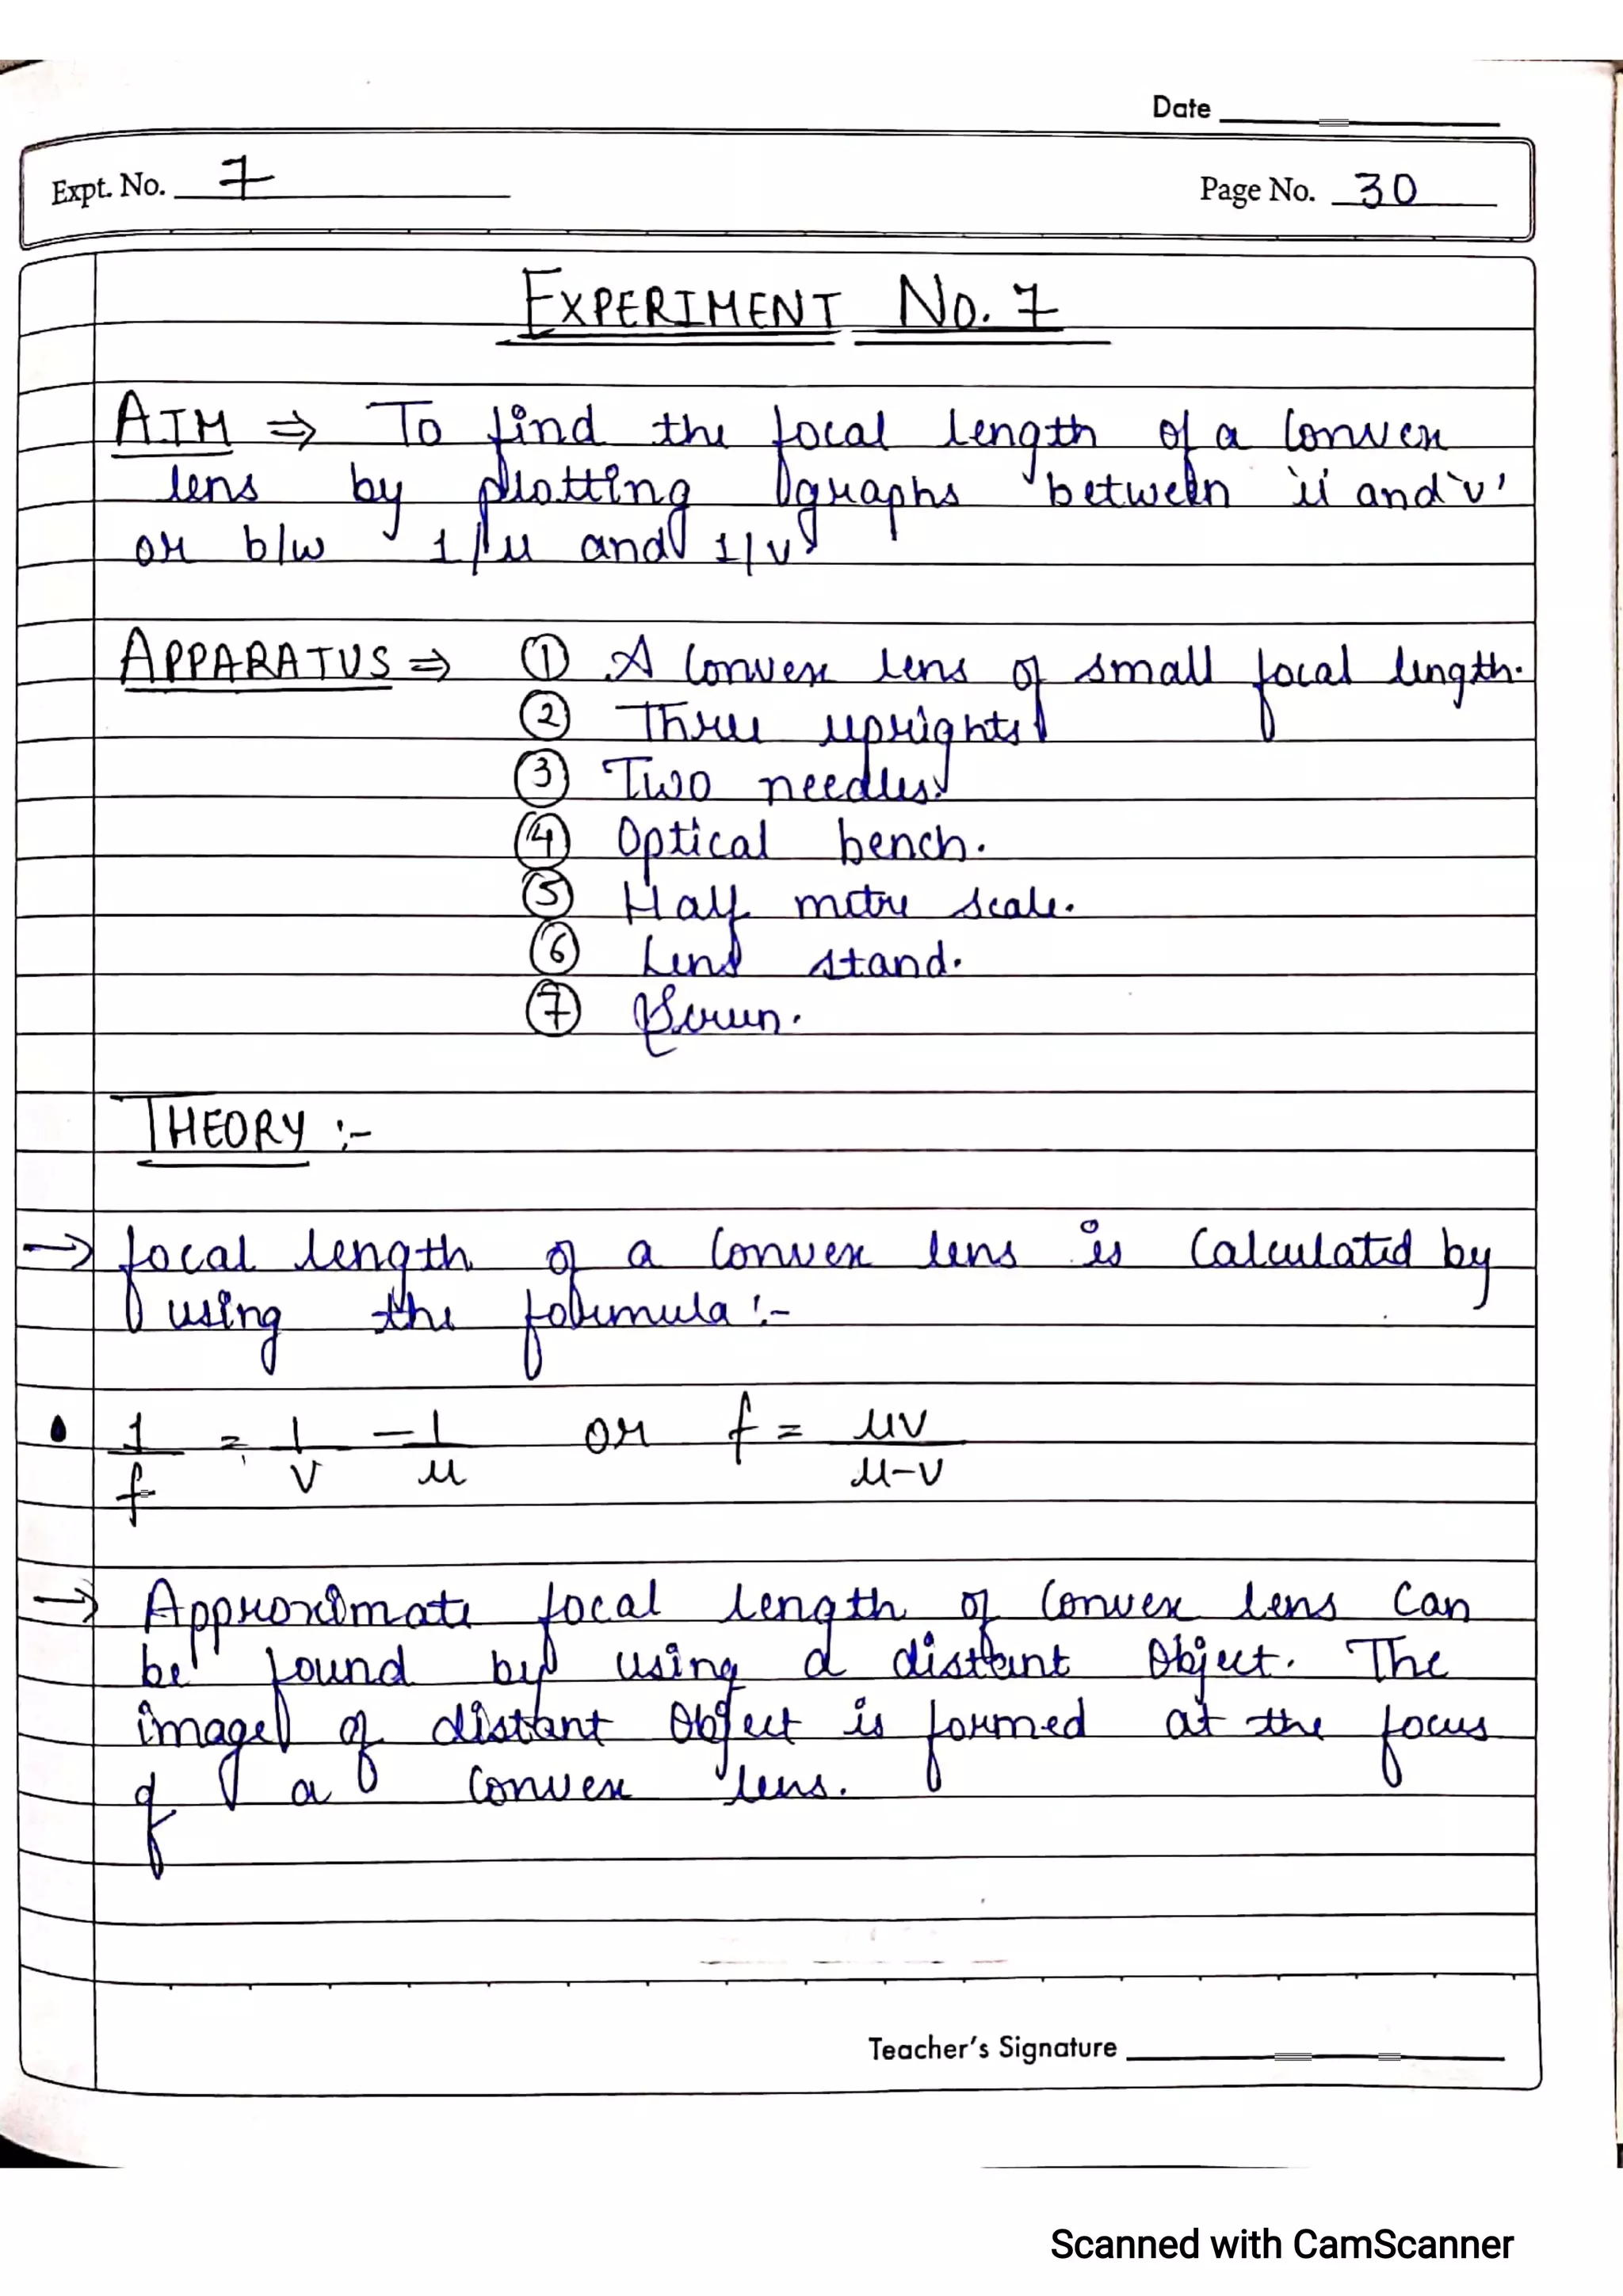 Date
Expt. No. 7
Page No. 30
EXPERIMENT No. 7
AIM ⇒ To find the focal length of a convex
lens by plotting graphs between 'u' and 'v'
or b/w 1/u and 1/v
APPARATUS ⇒ ① A convex lens of small focal length.
② Three uprights
③ Two needles.
④ Optical bench.
⑤ Half metre scale.
⑥ Lens stand.
⑦ Screen.
THEORY :-
→ focal length of a convex lens is calculated by
using the formula :-
• 1/f = 1/v - 1/u or f = uv/u-v
→ Approximate focal length of convex lens can
be found by using a distant object. The
image of distant object is formed at the focus
of a convex lens.
Teacher's Signature
Scanned with CamScanner